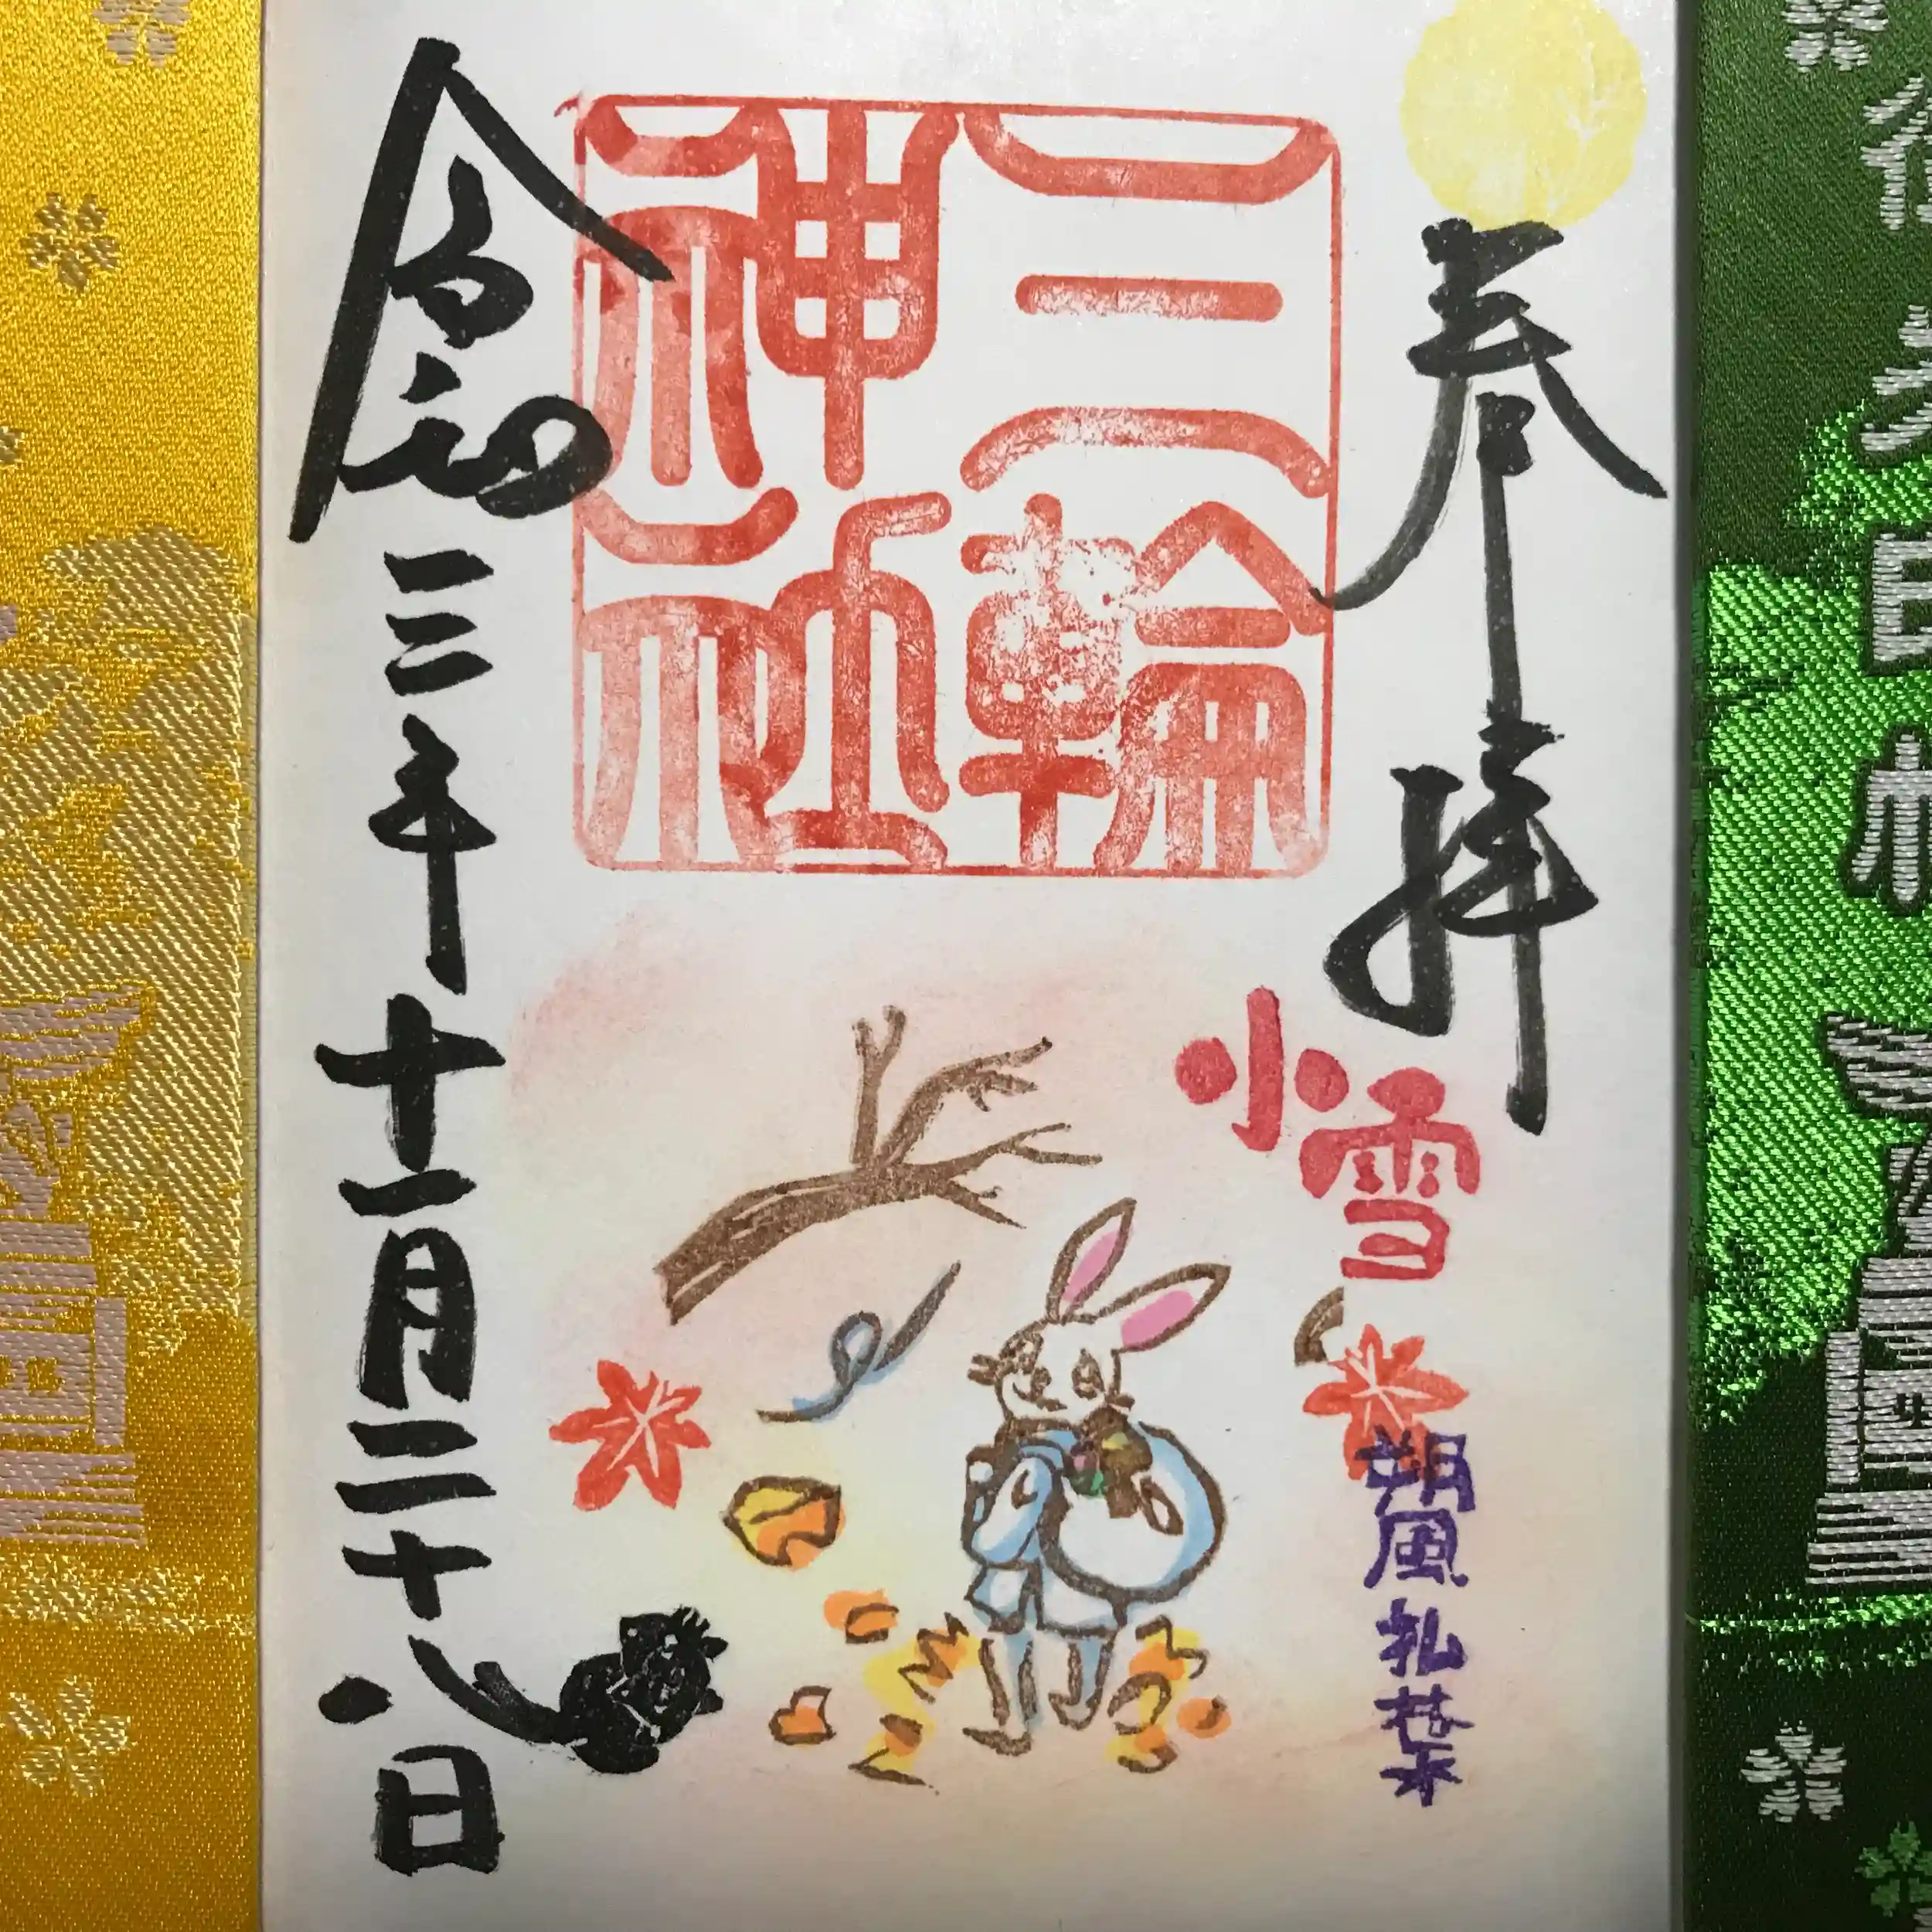 奉拝
三輪
神社
小雪
朔風払葉
令和三年十一月二十八日